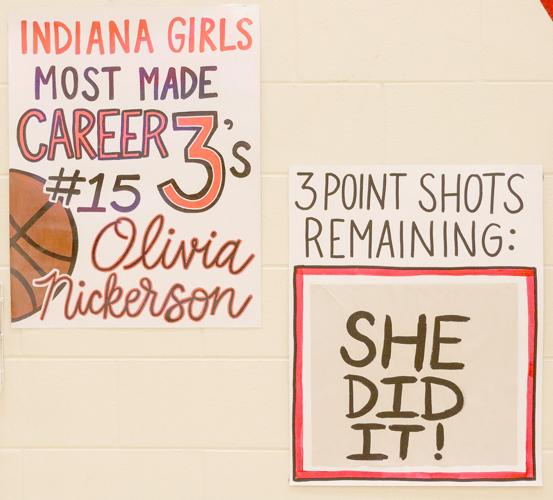 INDIANA GIRLS
MOST MADE
CAREER 3's
#15
Olivia
Nickerson
3 POINT SHOTS
REMAINING:
SHE
DID
IT!